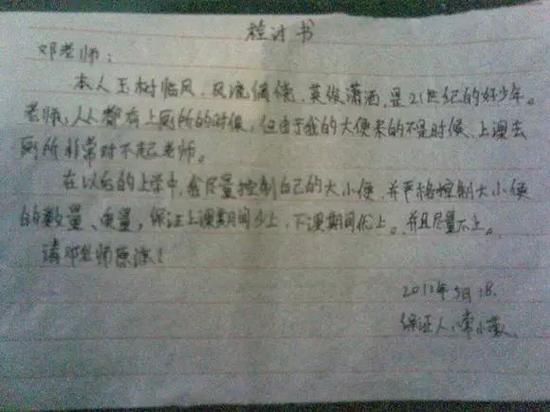 检讨书
邓老师:
本人玉树临风、风流倜傥、英俊潇洒,是21世纪的好少年。
老师,人人都有上厕所的时候,但由于我的大便来的不是时候,上课去
厕所非常对不起老师。
在以后的上学中,会尽量控制自己的大小便,并严格控制大小便
的数量、质量,保证上课期间少上,下课期间优上。并且尽量不上。
请邓老师原谅!
2012年5月18.
保证人:常小